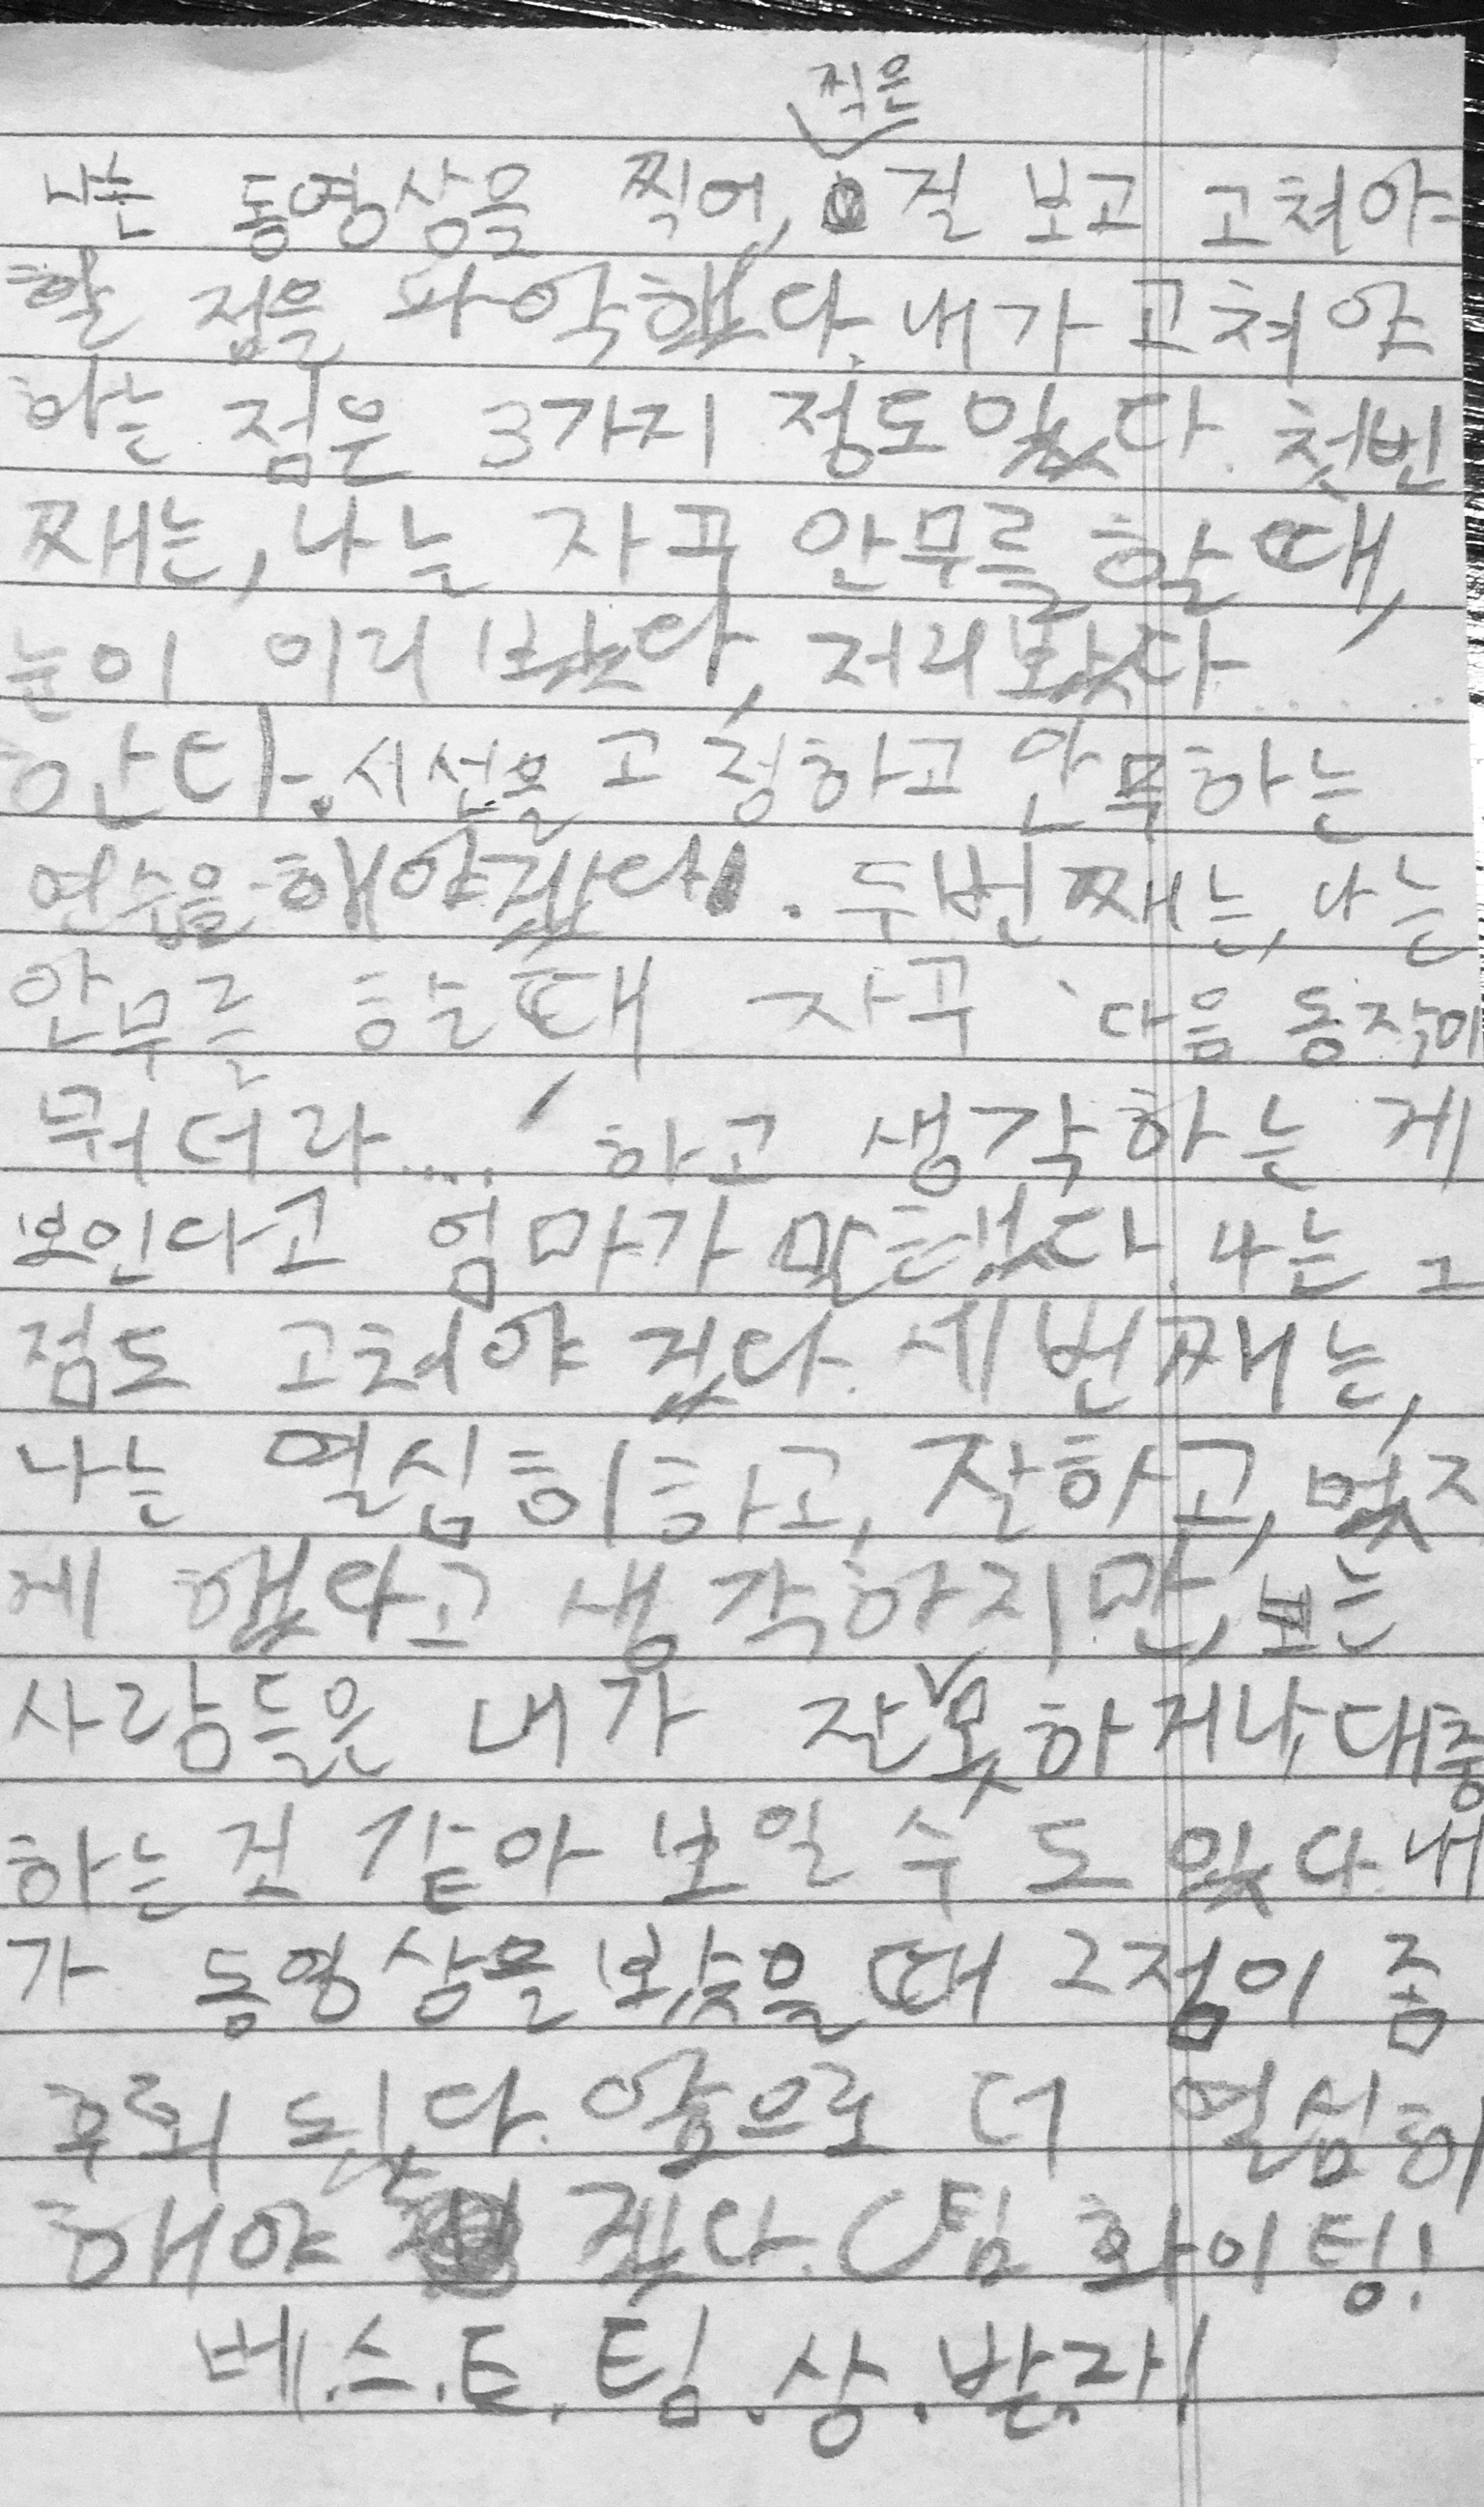 찍은
나는 동영상을 찍어, 걸 보고 고쳐야
할 점을 파악했다. 내가 고쳐야
하는 점은 3가지 정도있다. 첫번
째는, 나는 자꾸 안무를 할때,
눈이 이리봤다, 저리봤다.....
한다. 시선을 고정하고 안무하는
연습을 해야겠다. 두번째는, 나는
안무를 할때 자꾸 '다음 동작이
뭐더라....' 하고 생각하는 게
보인다고 엄마가 말했다. 나는 그
점도 고쳐야 겠다. 세번째는,
나는 열심히하고, 잘하고, 멋지
게 했다고 생각하지만, 보는
사람들은 내가 잘 못하거나, 대충
하는 것 같아 보일 수 도 있다. 내
가 동영상을 봤을때 그점이 좀
후회 됬다. 앞으로 더 열심히
해야 겠다. 팀 화이팅!
베.스.트.팀.상.받.자!